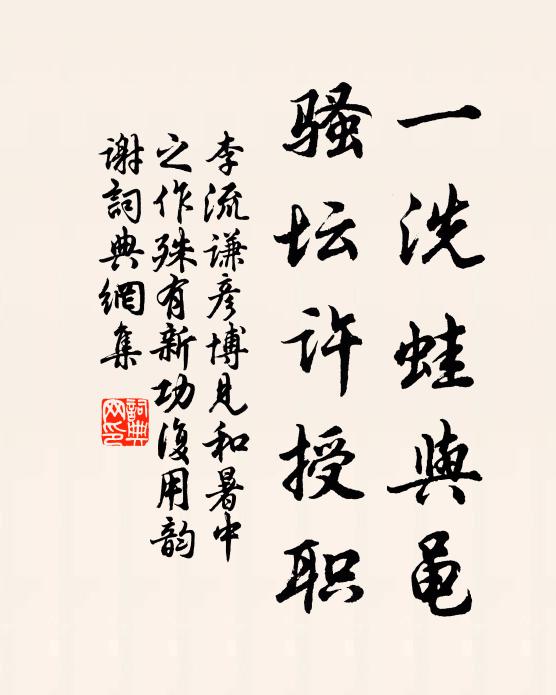 一洗蛙與黽
骚坛许授职
李流谦彦博見和暑中
之作殊有新功復用韵
谢詞典網集
詞典
网印